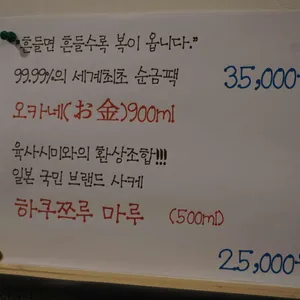 "흔들면 흔들수록 복이 옵니다."
99.99%의 세계최초 순금팩 35,000-
오카네(お金)900ml
육사시미와의 환상조합!!!
일본 국민 브랜드 사케
하쿠쯔루 마루 (500ml)
25,000-